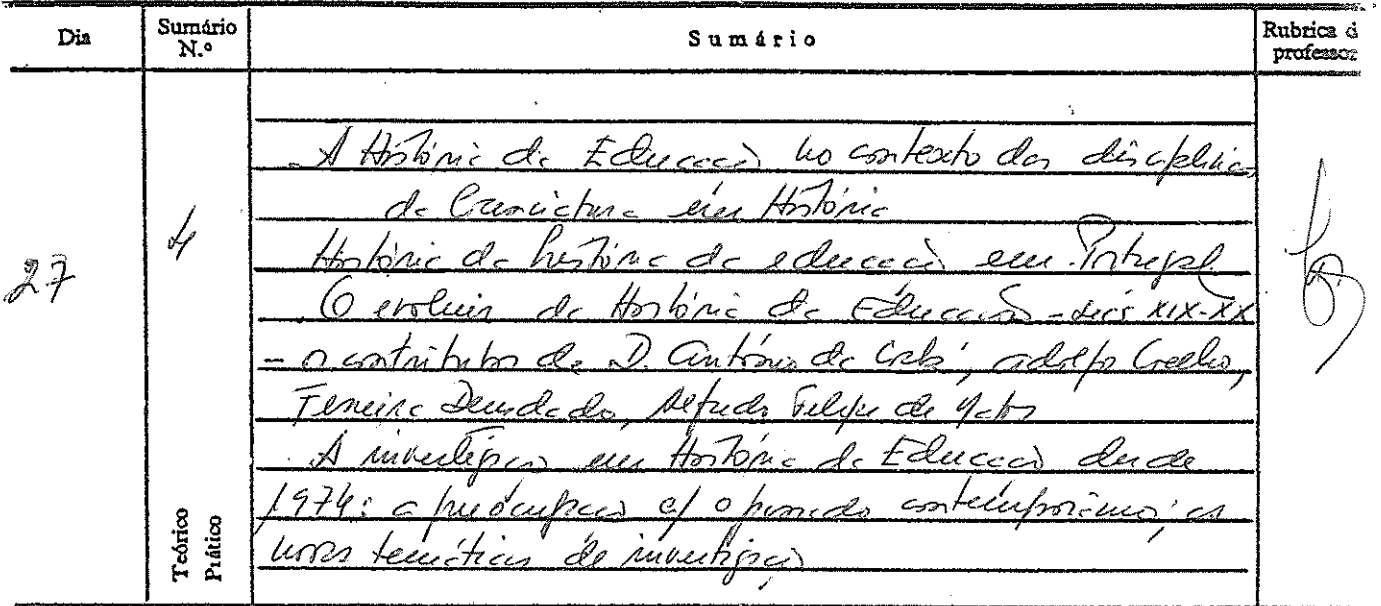 Dia
Sumário N.º
Sumário
Rubrica d
professor
27
4
Teórico
Prático
- A História da Educação no contexto das disciplinas
da Licenciatura em História
História da história da educação em Portugal.
O evoluir da História da Educação - sécs XIX-XX
- o contributo de D. António da Costa, Adolfo Coelho,
Ferreira Deusdado, Alfredo Felipe de Matos
. A investigação em História da Educação desde
1974: a preocupação c/ o período contemporâneo; as
novas temáticas de investigação